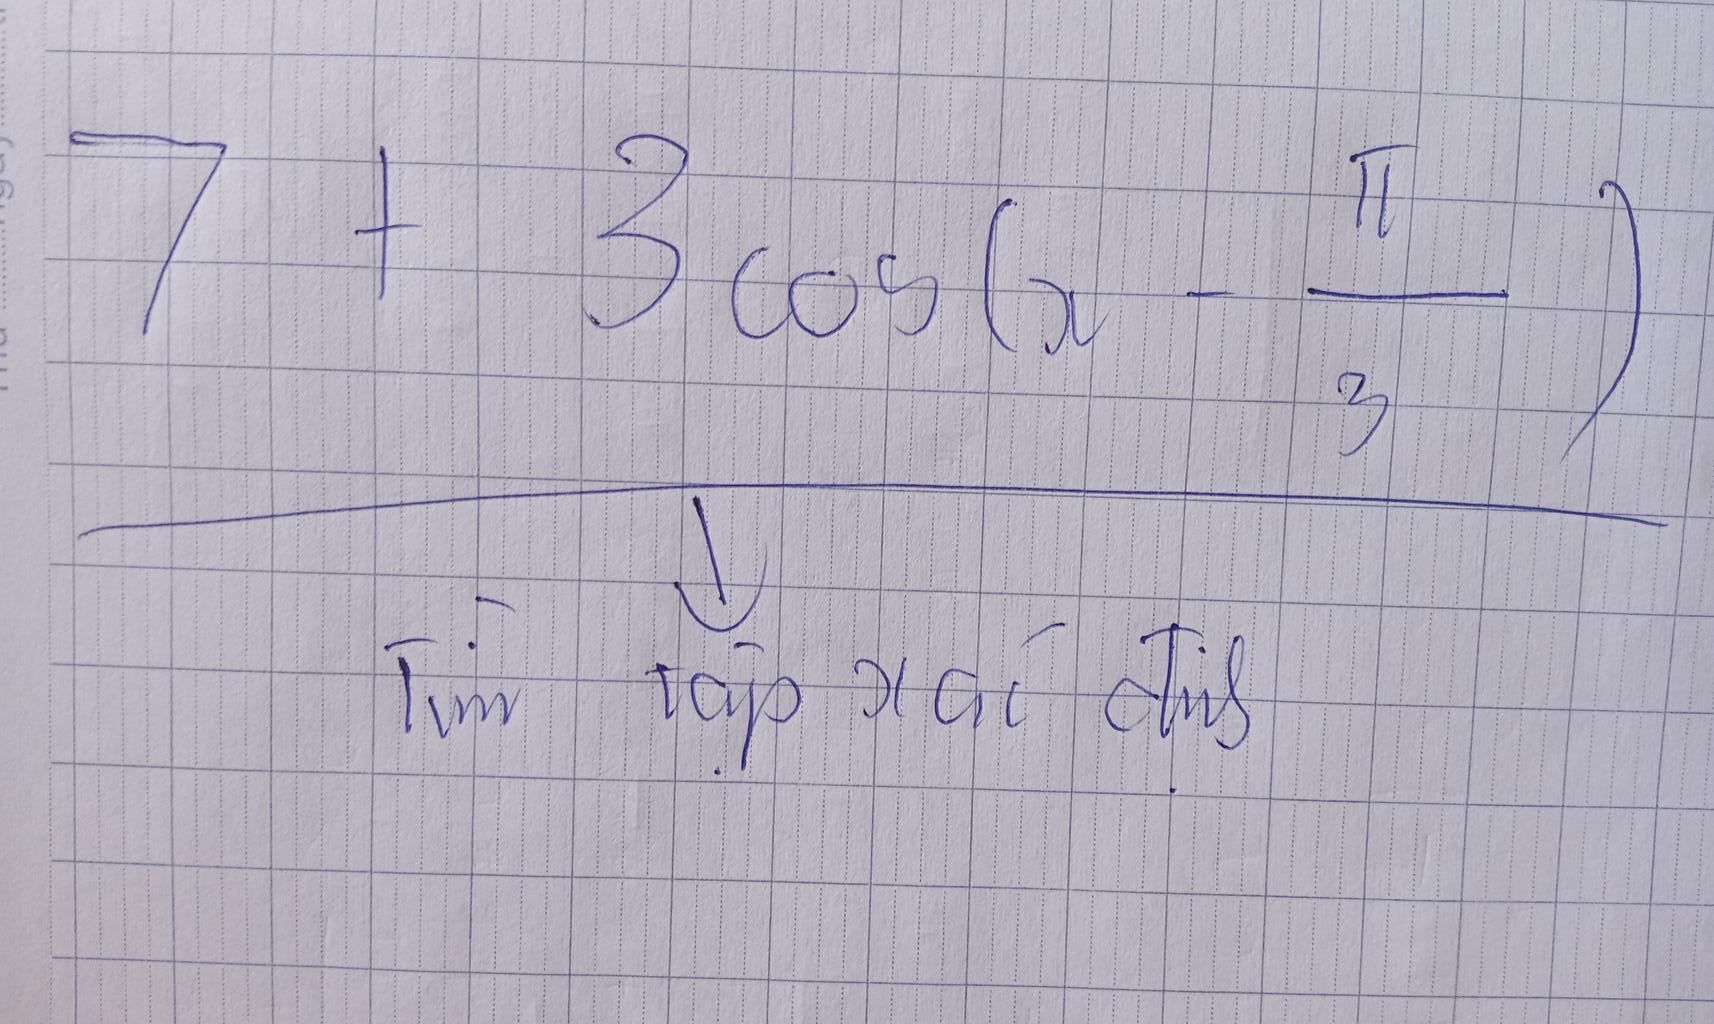 7 + 3 cos(x - π/3)
Tìm tập xác định